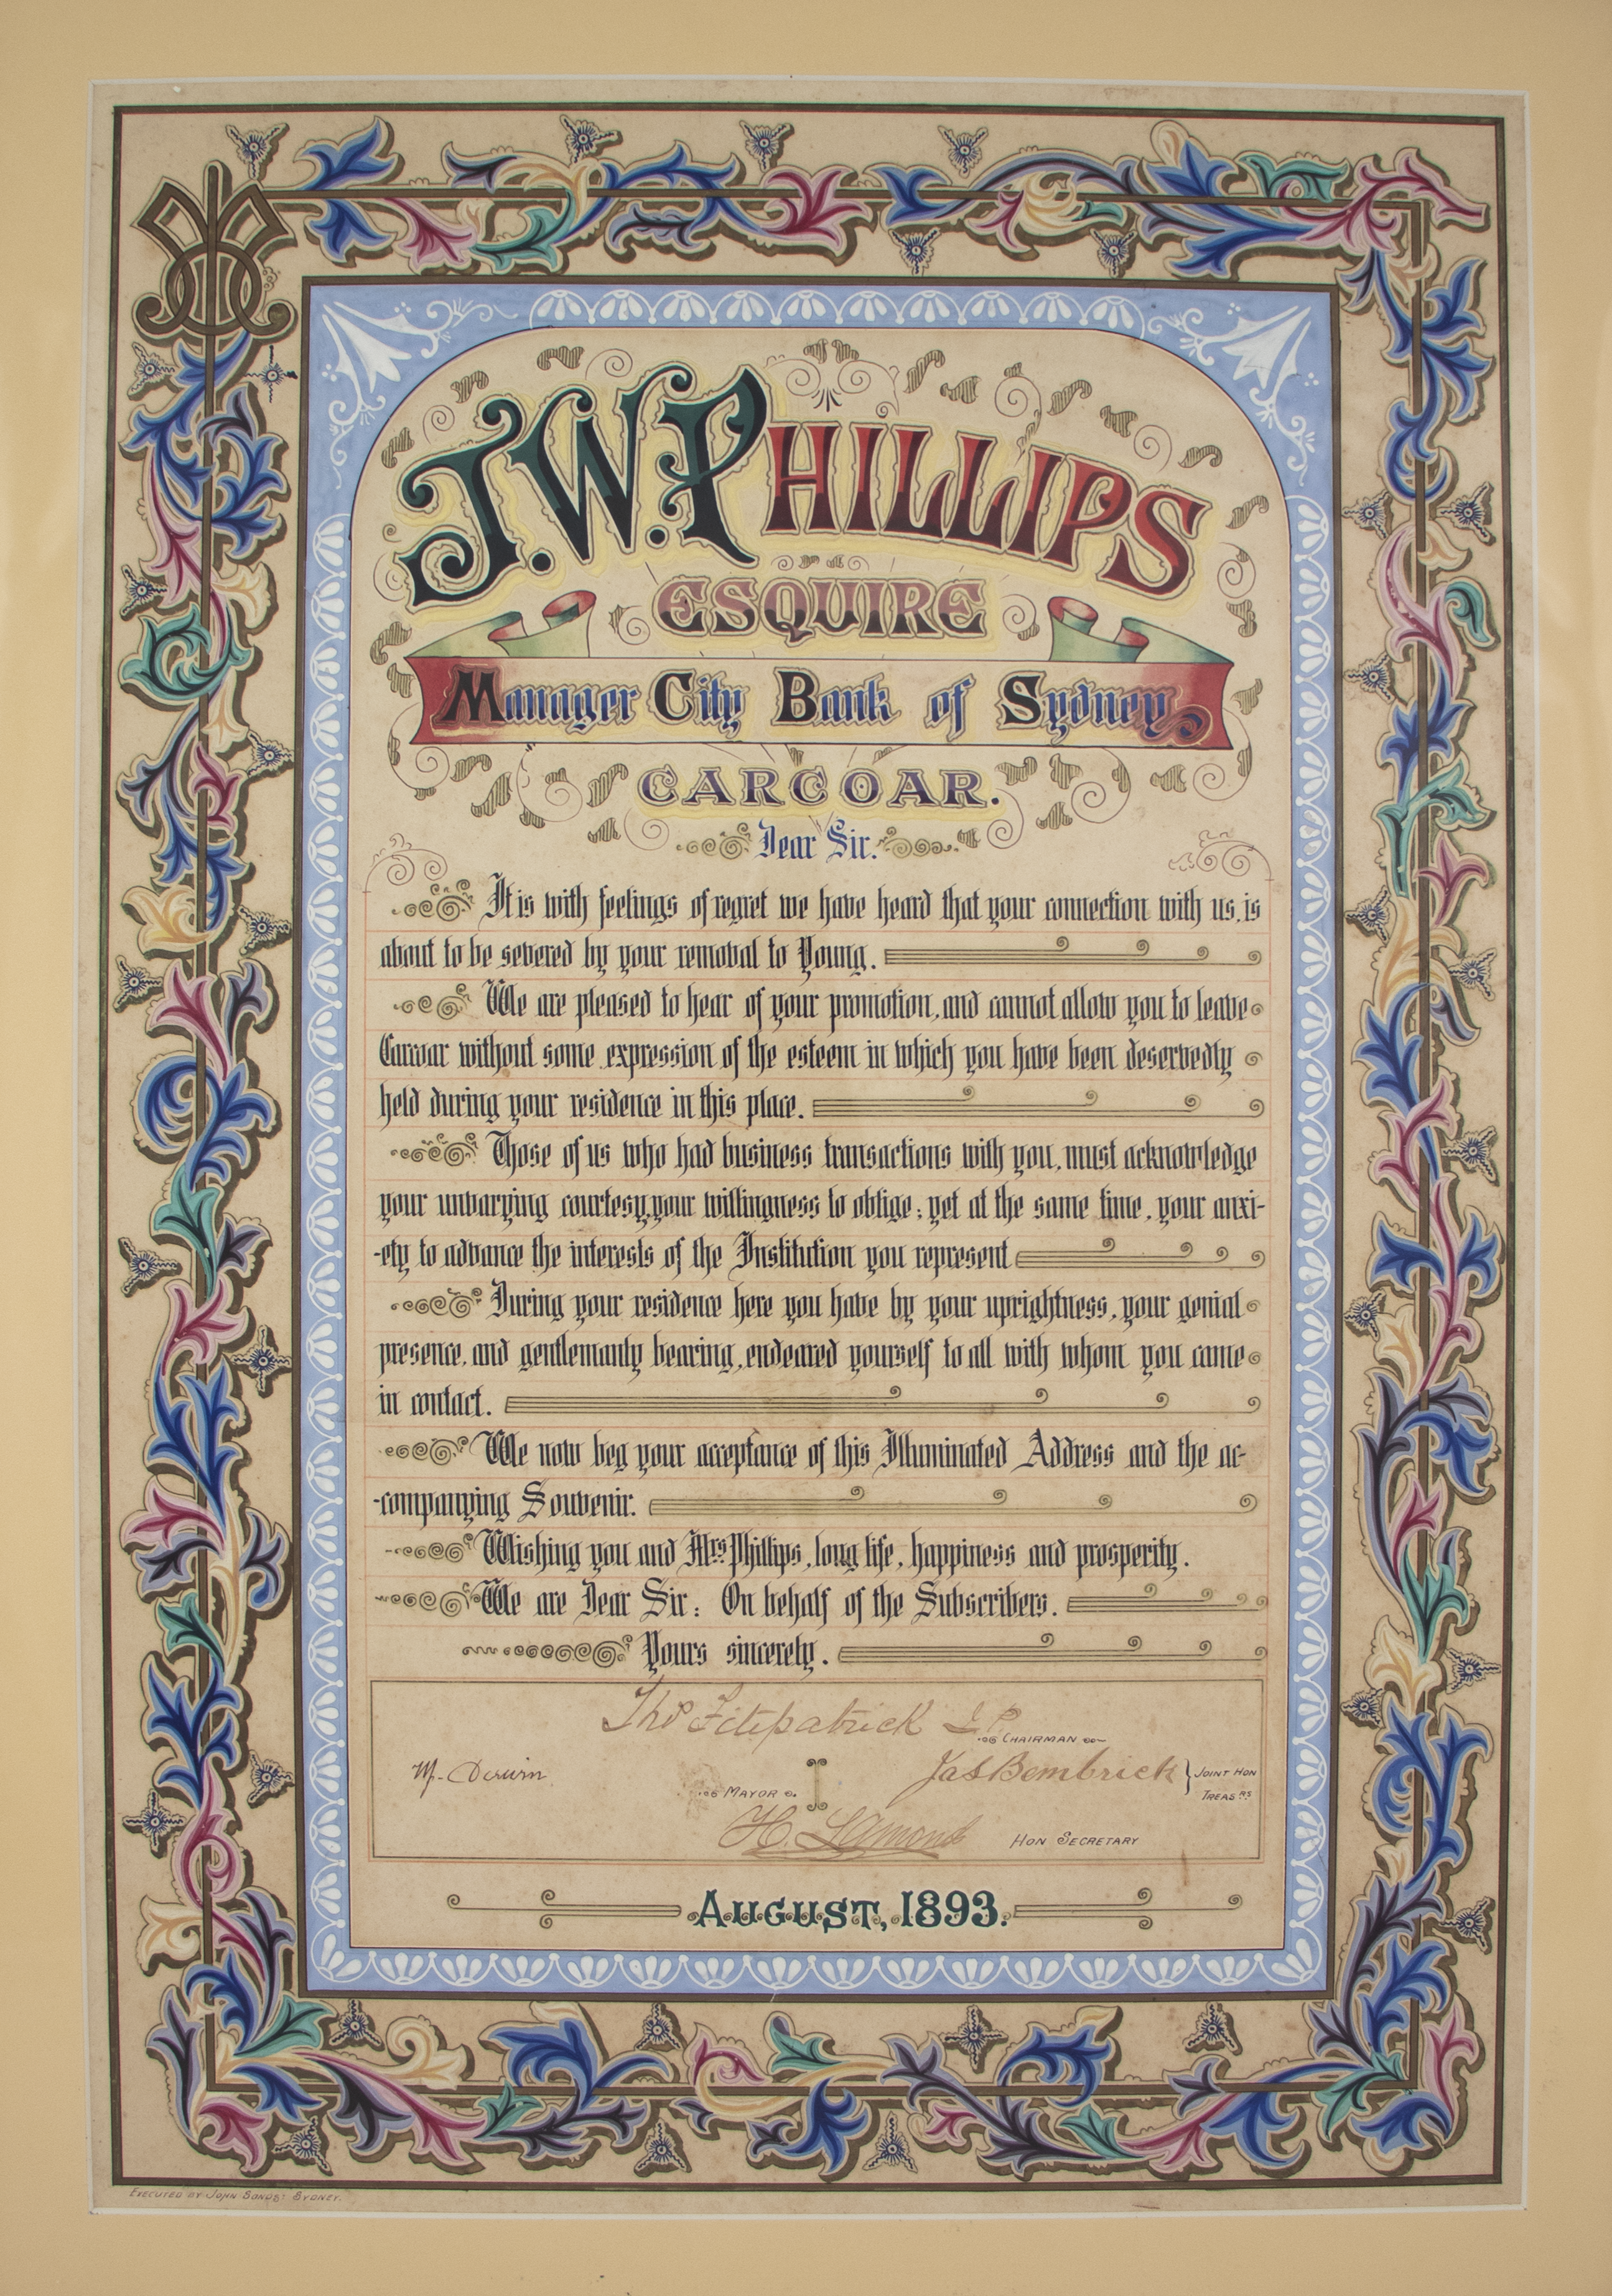 J.W. PHILLIPS
ESQUIRE
Manager City Bank of Sydney
CARCOAR.
Dear Sir.
It is with feelings of regret we have heard that your connection with us, is
about to be severed by your removal to Young.
We are pleased to hear of your promotion, and cannot allow you to leave
Carcoar without some expression of the esteem in which you have been deservedly
held during your residence in this place.
Those of us who had business transactions with you, must acknowledge
your unvarying courtesy, your willingness to oblige; yet at the same time, your anxi-
-ety to advance the interests of the Institution you represent
During your residence here you have by your uprightness, your genial
presence, and gentlemanly bearing, endeared yourself to all with whom you came
in contact.
We now beg your acceptance of this Illuminated Address and the ac-
-companying Souvenir.
Wishing you and Mrs Phillips, long life, happiness and prosperity.
We are Dear Sir: On behalf of the Subscribers.
Yours sincerely.
Thos Fitzpatrick J.P.
CHAIRMAN
M. Derwin
MAYOR
Jas Bembrick
JOINT HON
TREASRS
H. Lamond
HON SECRETARY
AUGUST, 1893.
EXECUTED BY JOHN SANDS: SYDNEY.